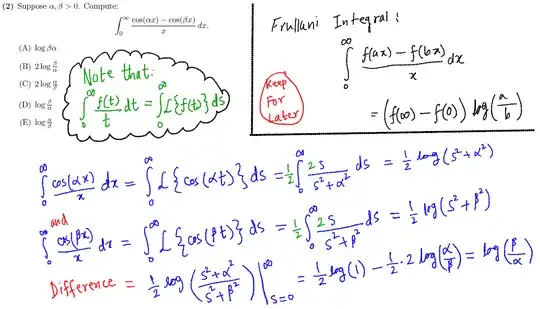 (2) Suppose α, β > 0. Compute:
∫₀^∞ (cos(αx) − cos(βx))/x dx.
(A) log βα
(B) 2 log β/α
(C) 2 log α/β
(D) log β/α
(E) log α/β
Note that:
∫₀^∞ f(t)/t dt = ∫₀^∞ L{f(t)} ds
Frullani Integral:
∫₀^∞ (f(ax) − f(bx))/x dx
= (f(∞) − f(0)) log(a/b)
Keep
For
Later
∫₀^∞ cos(αx)/x dx = ∫₀^∞ L{cos(αt)} ds = 1/2 ∫₀^∞ 2s/(s²+α²) ds = 1/2 log(s²+α²)
and
∫₀^∞ cos(βx)/x dx = ∫₀^∞ L{cos(βt)} ds = 1/2 ∫₀^∞ 2s/(s²+β²) ds = 1/2 log(s²+β²)
Difference = 1/2 log((s²+α²)/(s²+β²)) |_{s=0}^∞ = 1/2 log(1) − 1/2 · 2 log(α/β) = log(β/α)